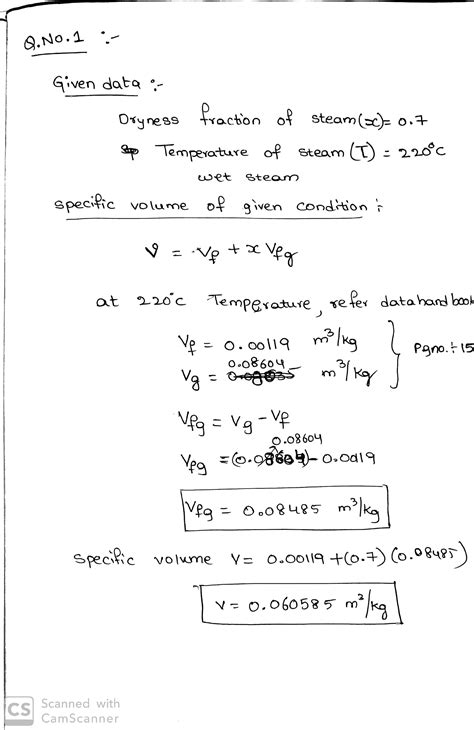 Q.No.1 :-
Given data :-
Dryness fraction of steam (x) = 0.7
Temperature of steam (T) = 220°C
wet steam
specific volume of given condition :
v = Vf + x Vfg
at 220°C Temperature, refer datahand book
Vf = 0.00119 m³/kg
Pgno. :- 15
0.08604
Vg = m³/kg
Vfg = Vg - Vf
0.08604
Vfg = (0.08604) - 0.0019
Vfg = 0.08485 m³/kg
specific volume V = 0.00119 + (0.7) (0.08485)
V = 0.060585 m³/kg
CS Scanned with
CamScanner